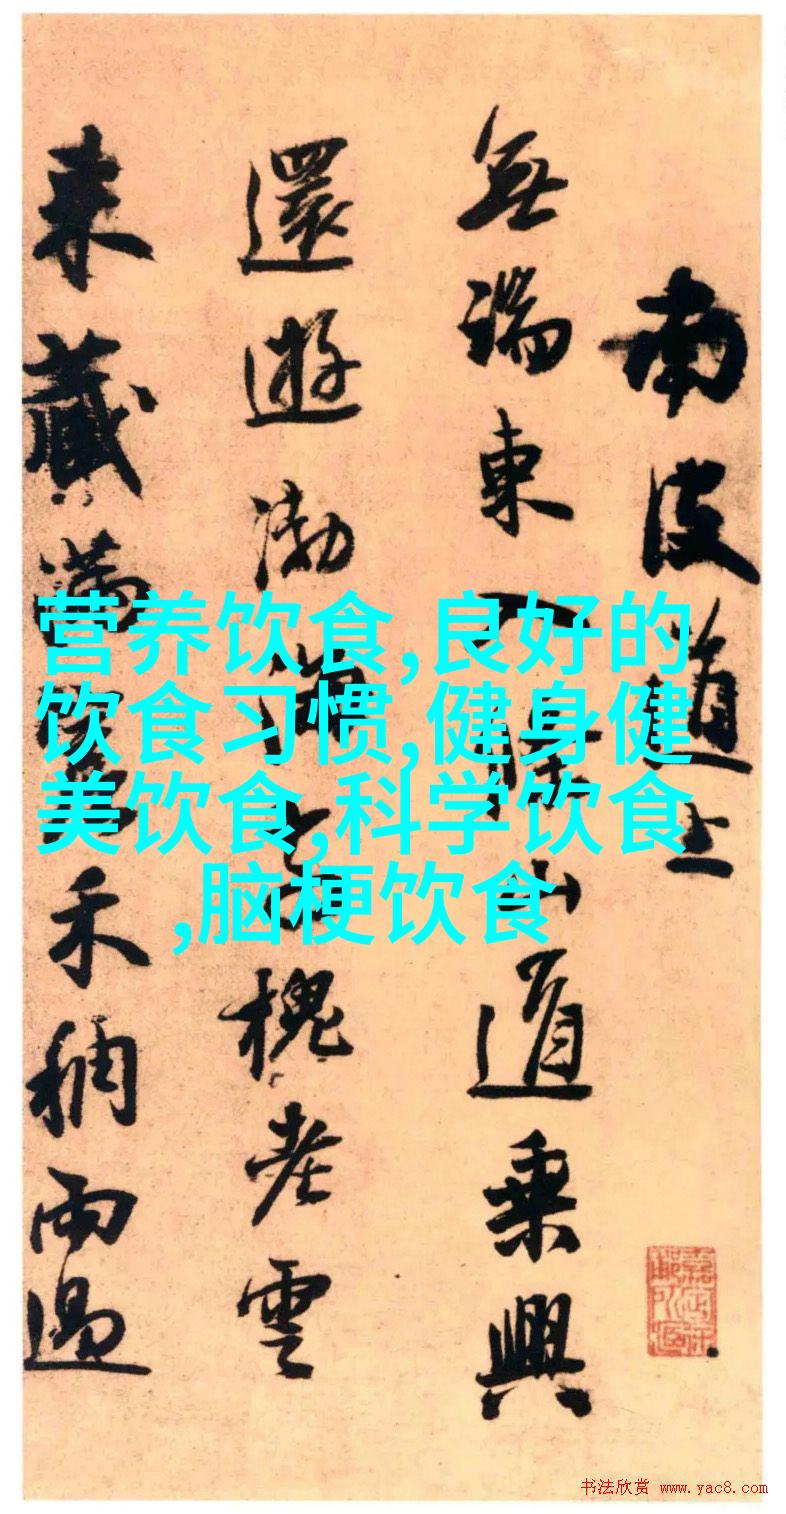 南皮道上
無端東入山道乘興
還遊渤海槐老雲
來藏滿禾稠雨過
营养饮食,良好的
饮食习惯,健身健
美饮食,科学饮食
,脑梗饮食
书法欣赏 www.yac8.com